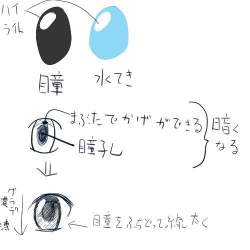 ハイ
ライト
目童
水てき
まぶたでかげができる
瞳孔
暗く
なる
グラデ
濃
淡
瞳をふちどって